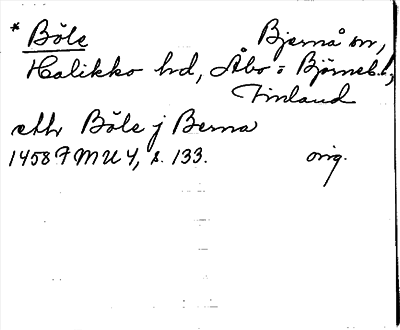 * Böle Bjernå sn,
Halikko hd, Åbo = Björneb.,
Finland
ett Böle j Berna
1458 FMU 4, s. 133. orig.